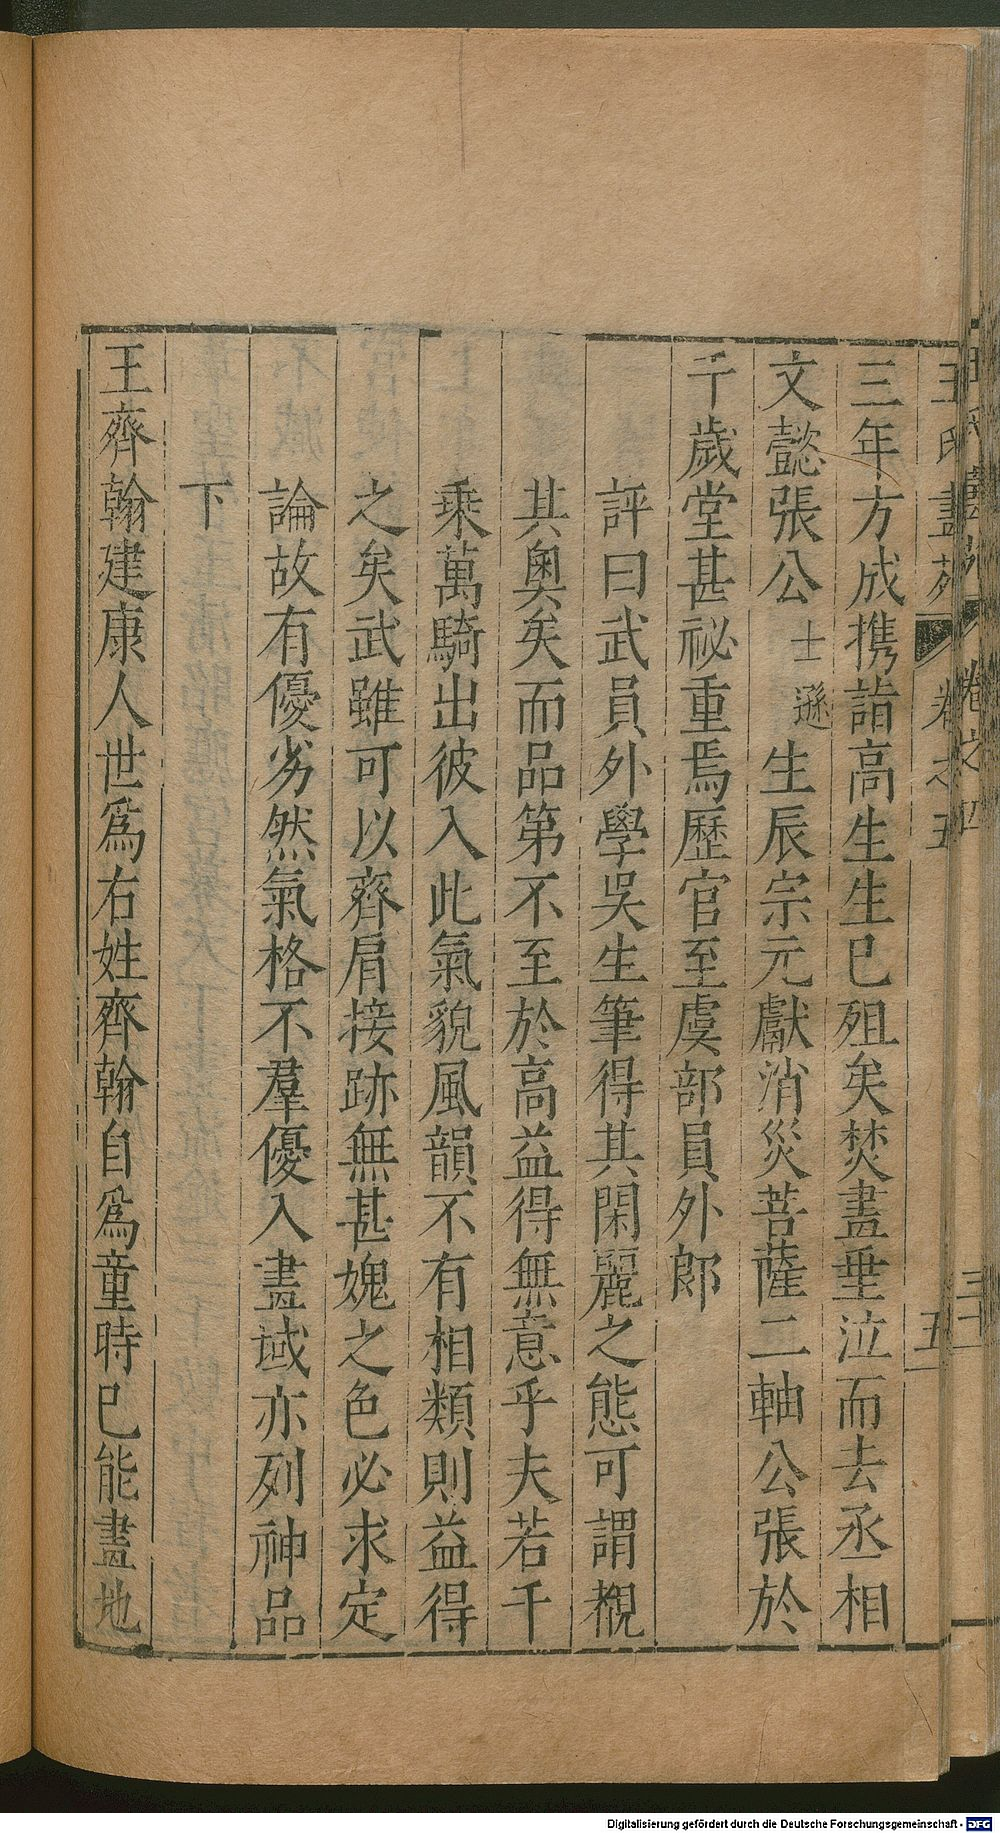 王氏畫苑 卷之五 五
三年方成携詣高生生已殂矣焚畫垂泣而去丞相
文懿張公士遜生辰宗元獻消災菩薩二軸公張於
千歲堂甚祕重焉歷官至虞部員外郎
評曰武員外學吳生筆得其閑麗之態可謂覩
其奧矣而品第不至於高益得無意乎夫若千
乘萬騎出彼入此氣貌風韻不有相類則益得
之矣武雖可以齊肩接跡無甚媿之色必求定
論故有優劣然氣格不羣優入畫域亦列神品
下
王齊翰建康人世爲右姓齊翰自爲童時已能畫地
Digitalisierung gefördert durch die Deutsche Forschungsgemeinschaft - DFG